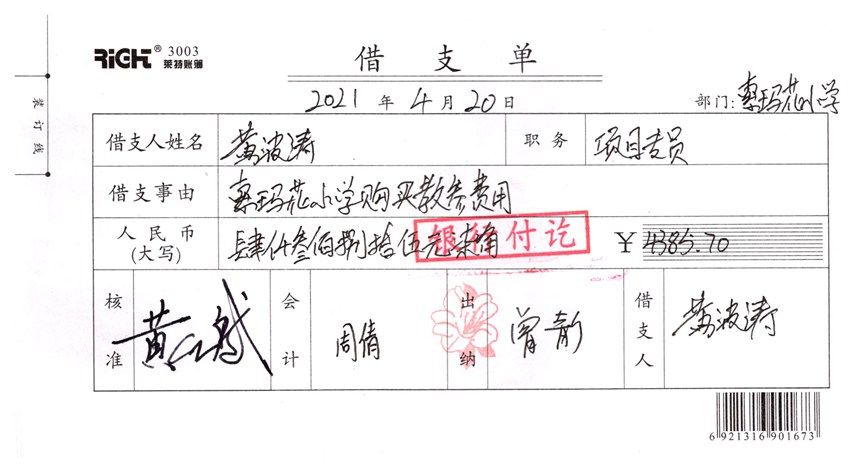 RiGHT® 3003
莱特账簿
借支单
2021年4月20日
部门:惠玛苑小学
装订线
借支人姓名 黄波涛 职务 项目专员
借支事由 惠玛苑小学购买教参费用
人民币(大写) 肆仟叁佰捌拾伍元柒角 ¥4385.70
银行付讫
核准 会计 周倩 出纳 曾静 借支人 黄波涛
6 921316 901673